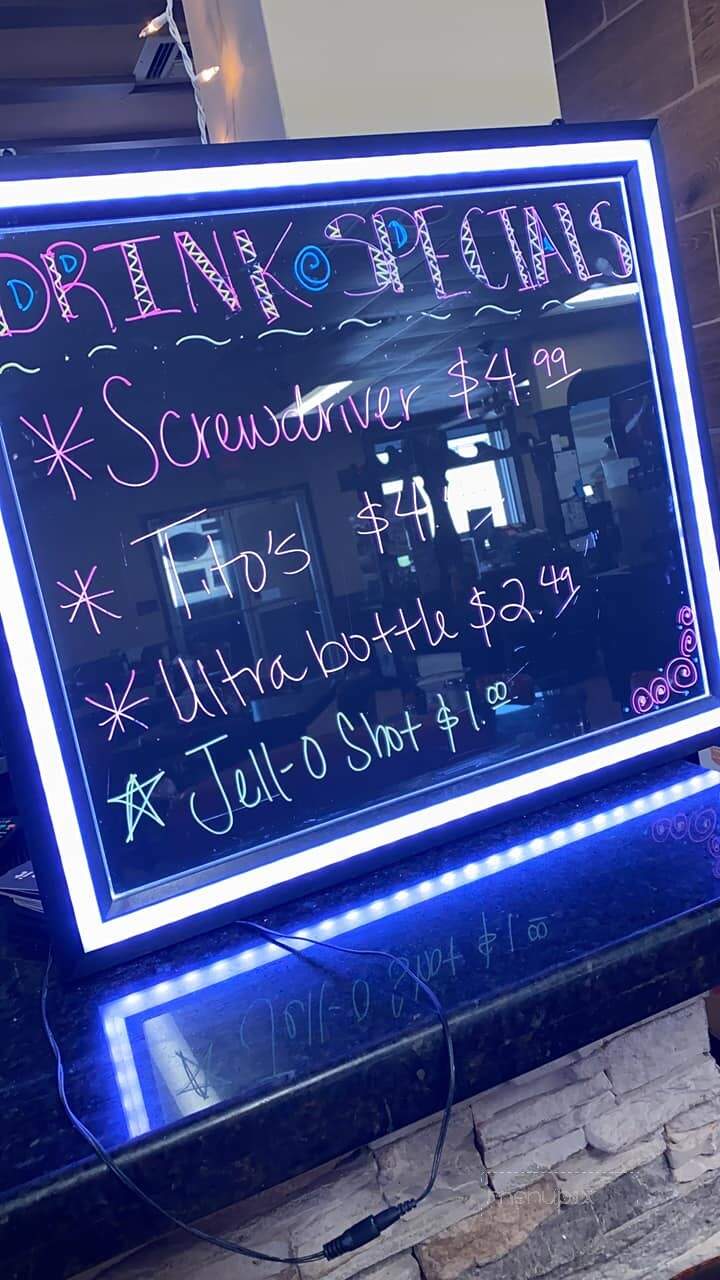 DRINK SPECIALS
* Screwdriver $4.99
* Tito's $4.
* Ultra bottle $2.49
☆ Jell-O Shot $1.00
menupix